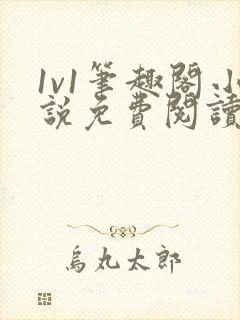 1v1筆趣閣
說免費閱讀
烏丸太郎